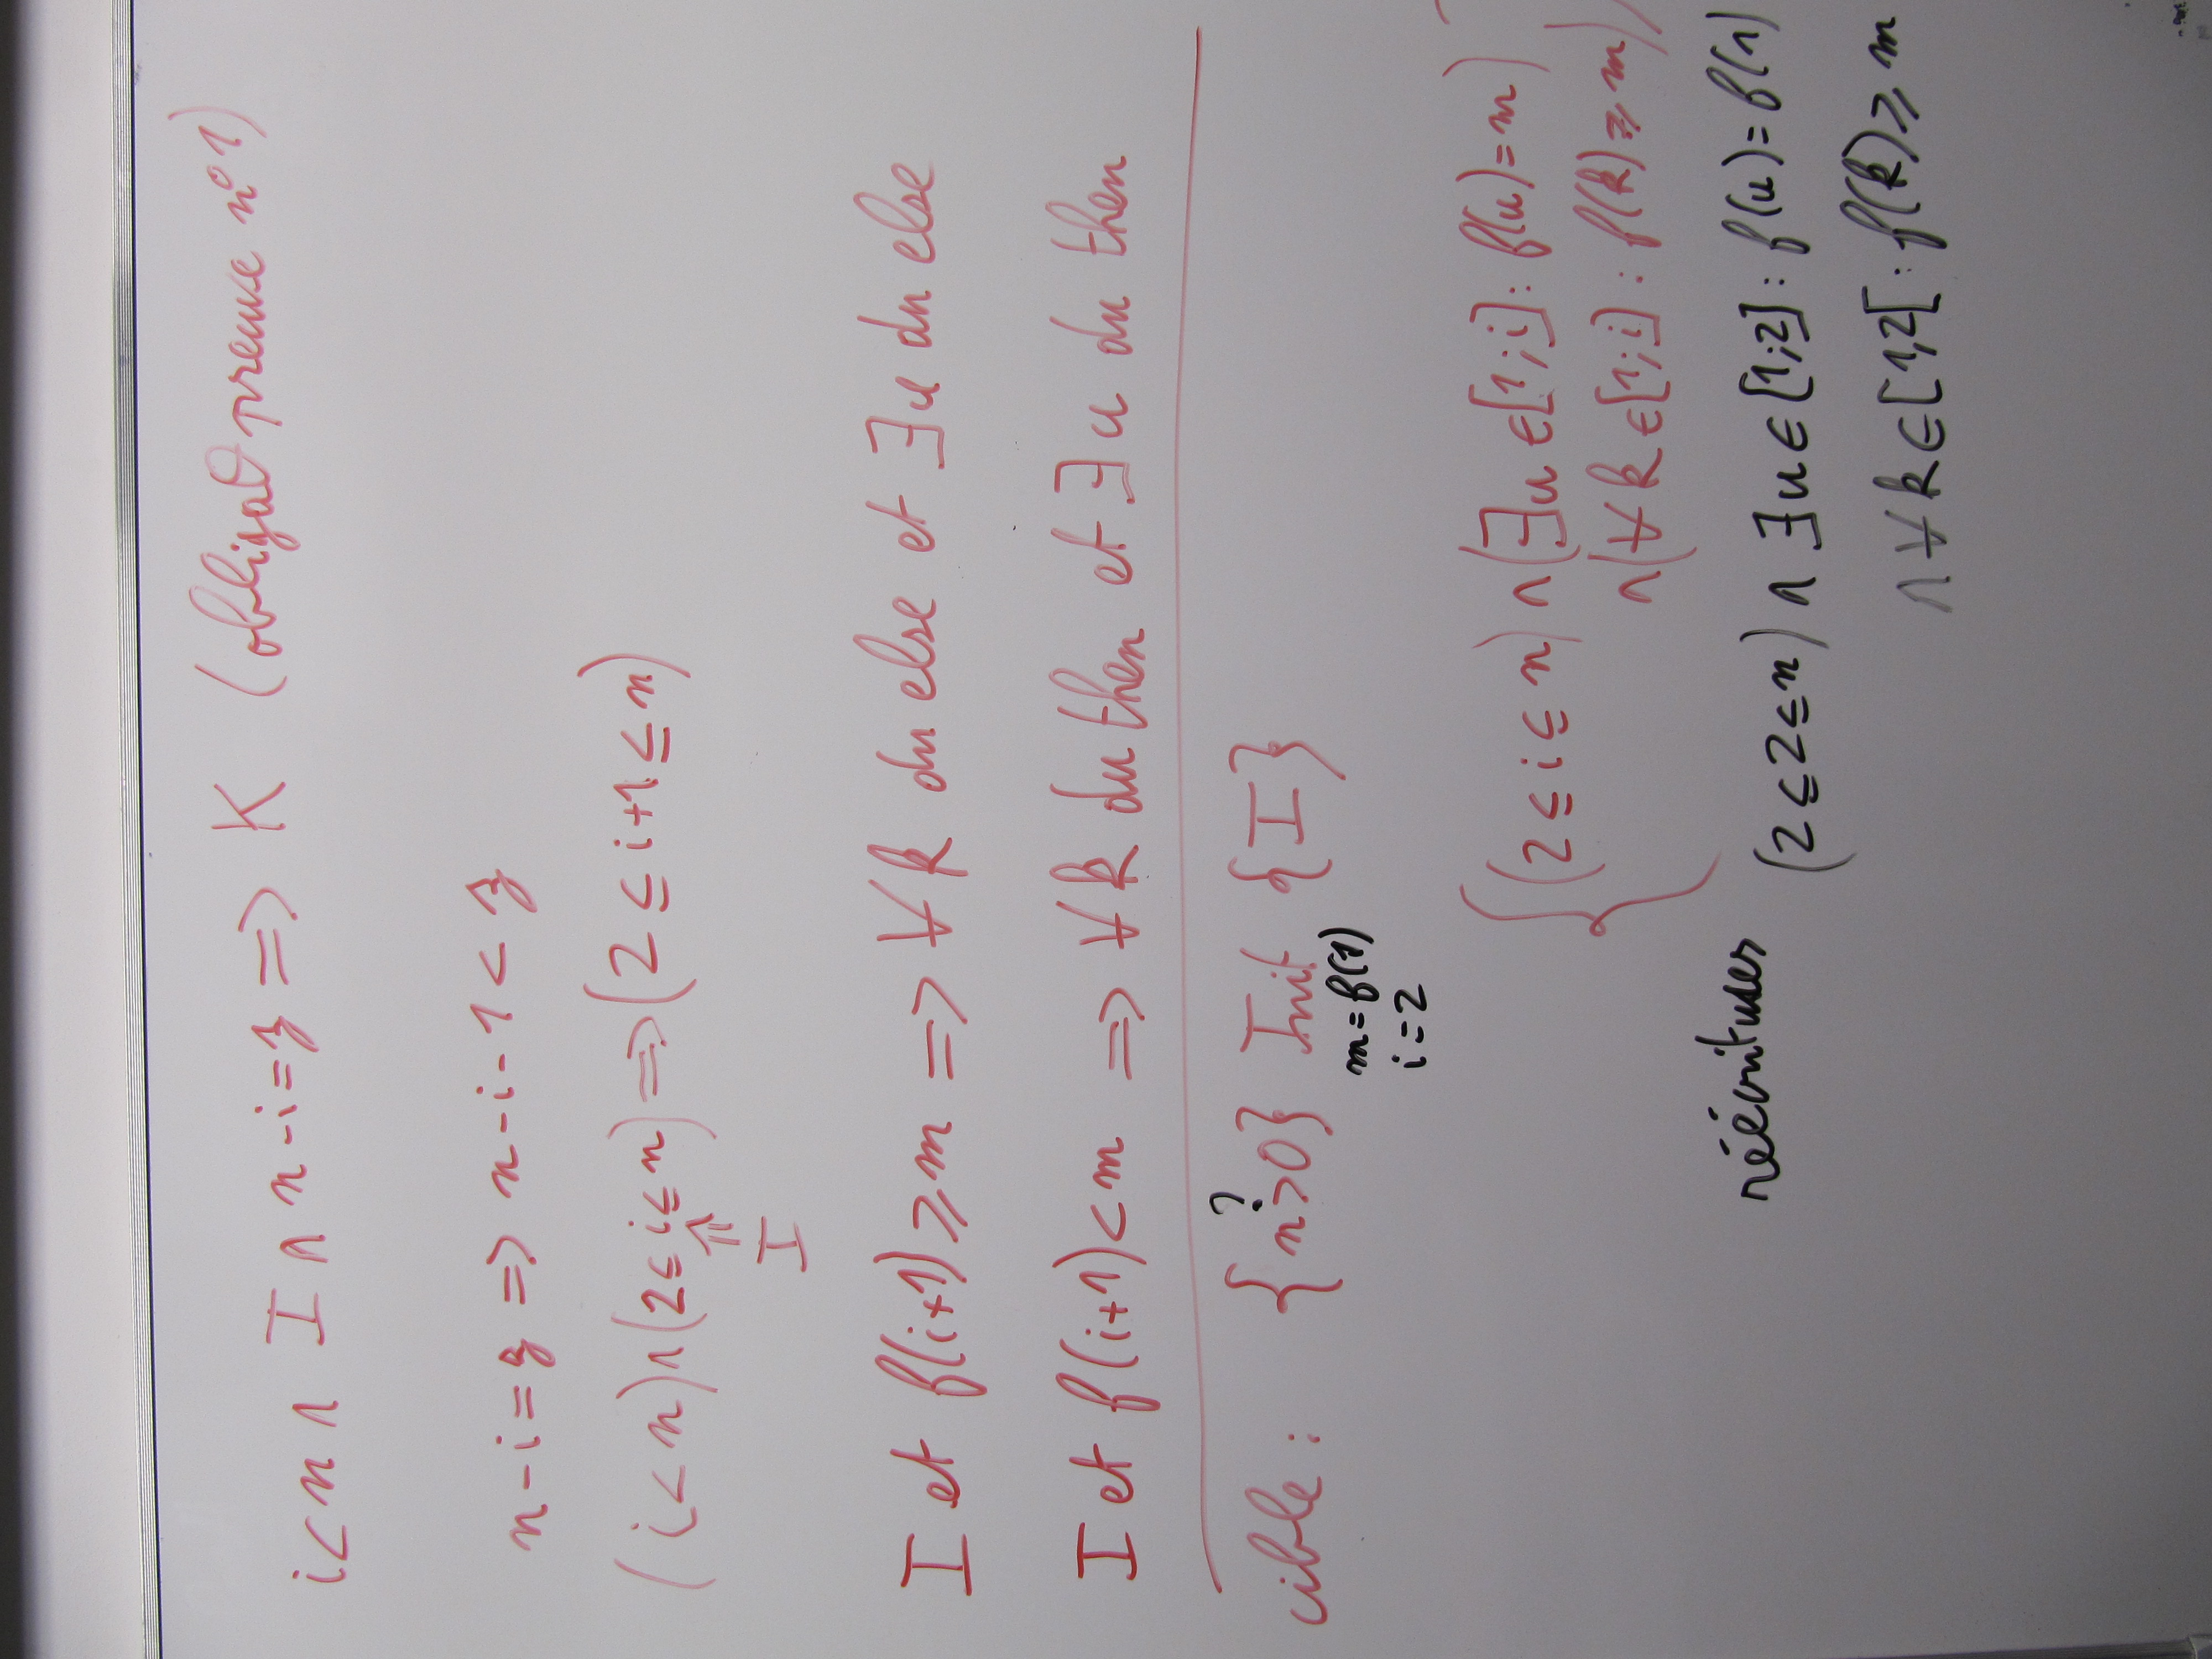 i<n ∧ I ∧ n-i=z => K (obligaθ preuve n°1)
n-i=z => n-i-1<z
(i<n)∧(2≤i≤n) => (2≤i+1≤n)
⇑
I
I et f(i+1)≥m => ∀k du else et ∃u du else
I et f(i+1)<m => ∀k du then et ∃u du then
?
cible : {n>0} Init {I}
m=f(1)
i=2
{(2≤i≤n)∧(∃u∈[1;i]: f(u)=m)
∧(∀k∈[1;i]: f(k)≥m)}
réécritures (2≤2≤n)∧ ∃u∈[1;2]: f(u)=f(1)
∧ ∀k∈[1,2[: f(k)≥m